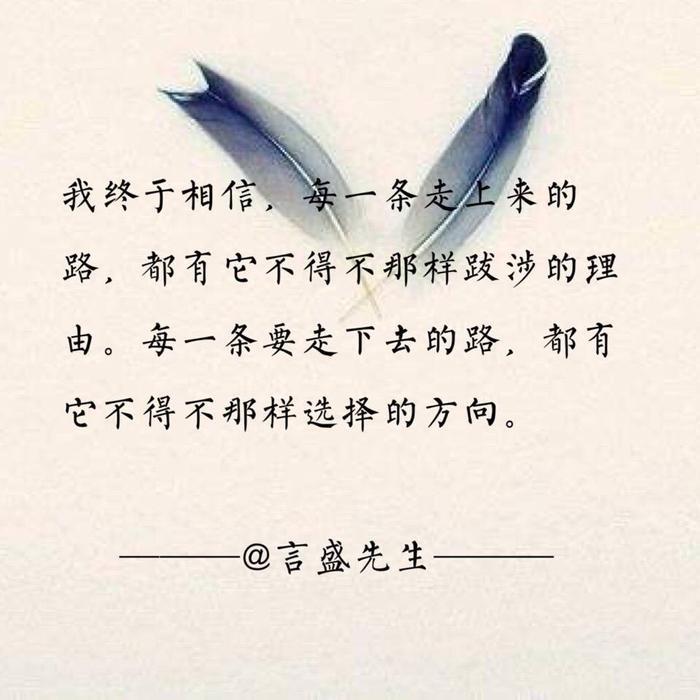 我终于相信，每一条走上来的
路，都有它不得不那样跋涉的理
由。每一条要走下去的路，都有
它不得不那样选择的方向。
———@言盛先生———